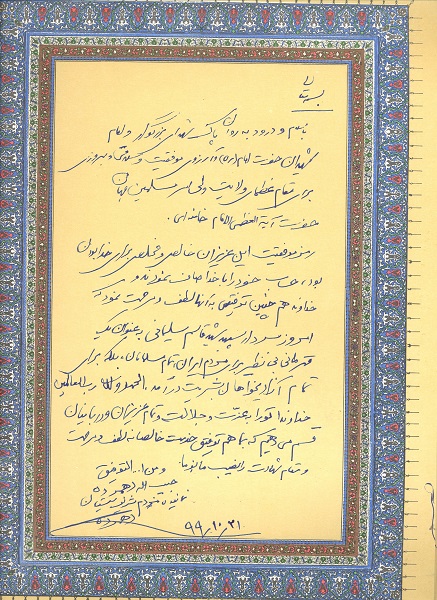 بسمه تعالی
با سلام و درود به روان پاک شهدای بزرگوار و امام
شهیدان حضرت امام (ره) و آرزوی موفقیت و سلامتی و پیروزی
برای مقام عظمای ولایت ولی امر مسلمین جهان
حضرت آیة العظمی الامام خامنه‌ای.
رمز موفقیت این عزیزان خالص و مخلص برای خدا بودن
بود، حساب خود را با خدا صاف نمودند و
خداوند هم چنین توفیقی به آنها لطف و مرحمت نمود که
امروز سردار سپهبد شهید قاسم سلیمانی به عنوان یک
قهرمانی بی نظیر برای مردم ایران تمام مسلمانان، بلکه برای
تمام آزادیخواهان بشریت در آمد. الحمدلله رب العالمین
خداوندا تو را به عزتت و جلالت و تمام عزیزان و دربانیان
قسم می‌دهیم که به ما هم توفیق خدمت خالصانه لطف و مرحمت
و مقام شهادت را نصیب ما بفرما و من ا... التوفیق
حبیب اله دهمرده
نماینده مردم شریف سیستان
دهمرده
۹۹،۱۰،۲۱